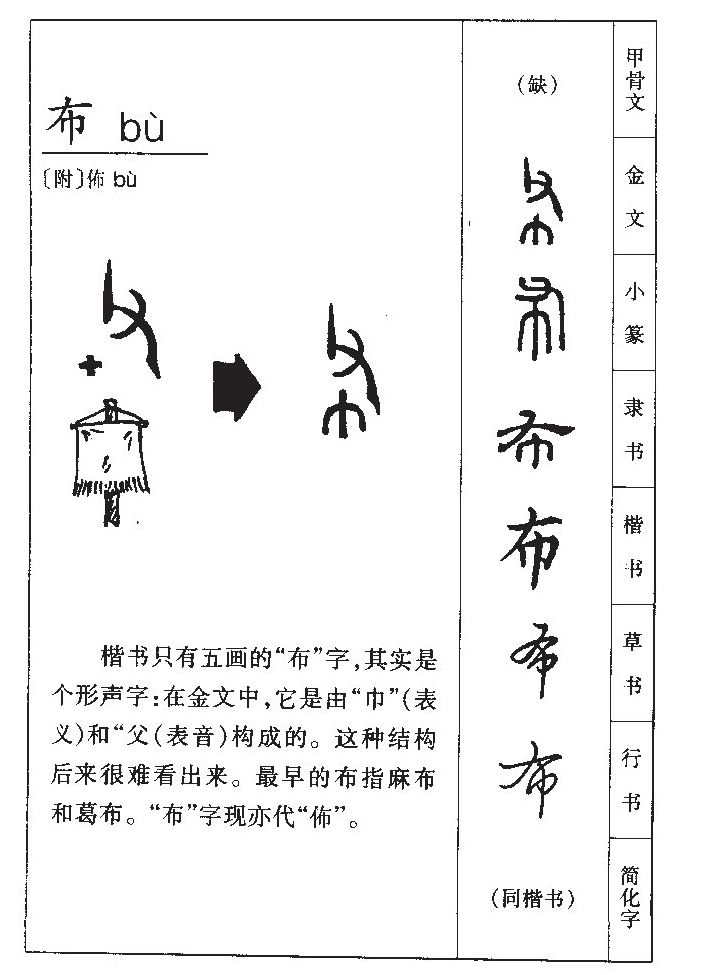 布 bù
〔附〕佈 bù
楷书只有五画的“布”字,其实是
个形声字:在金文中,它是由“巾”(表
义)和“父(表音)构成的。这种结构
后来很难看出来。最早的布指麻布
和葛布。“布”字现亦代“佈”。
(缺)
甲骨文
金文
小篆
布
隶书
布
楷书
布
草书
布
行书
(同楷书)
简化字